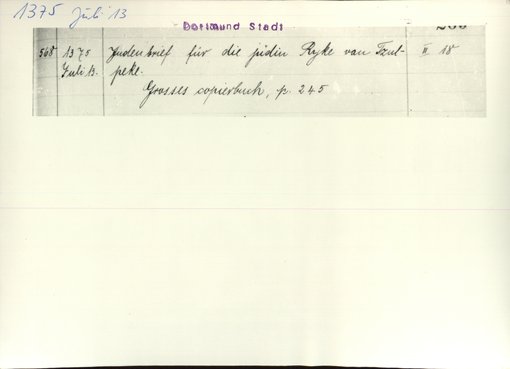 1375 Juli 13
Dortmund Stadt
568 1375 Judenbrief für die jüdin Ryke van Tzul- II 18
Juli 13. peke.
Grosses copierbuch, p. 245